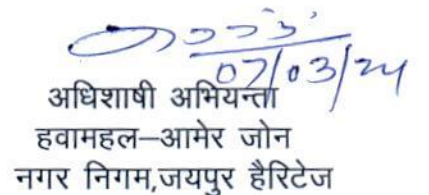 07/03/24
अधिशाषी अभियन्ता
हवामहल–आमेर जोन
नगर निगम,जयपुर हैरिटेज